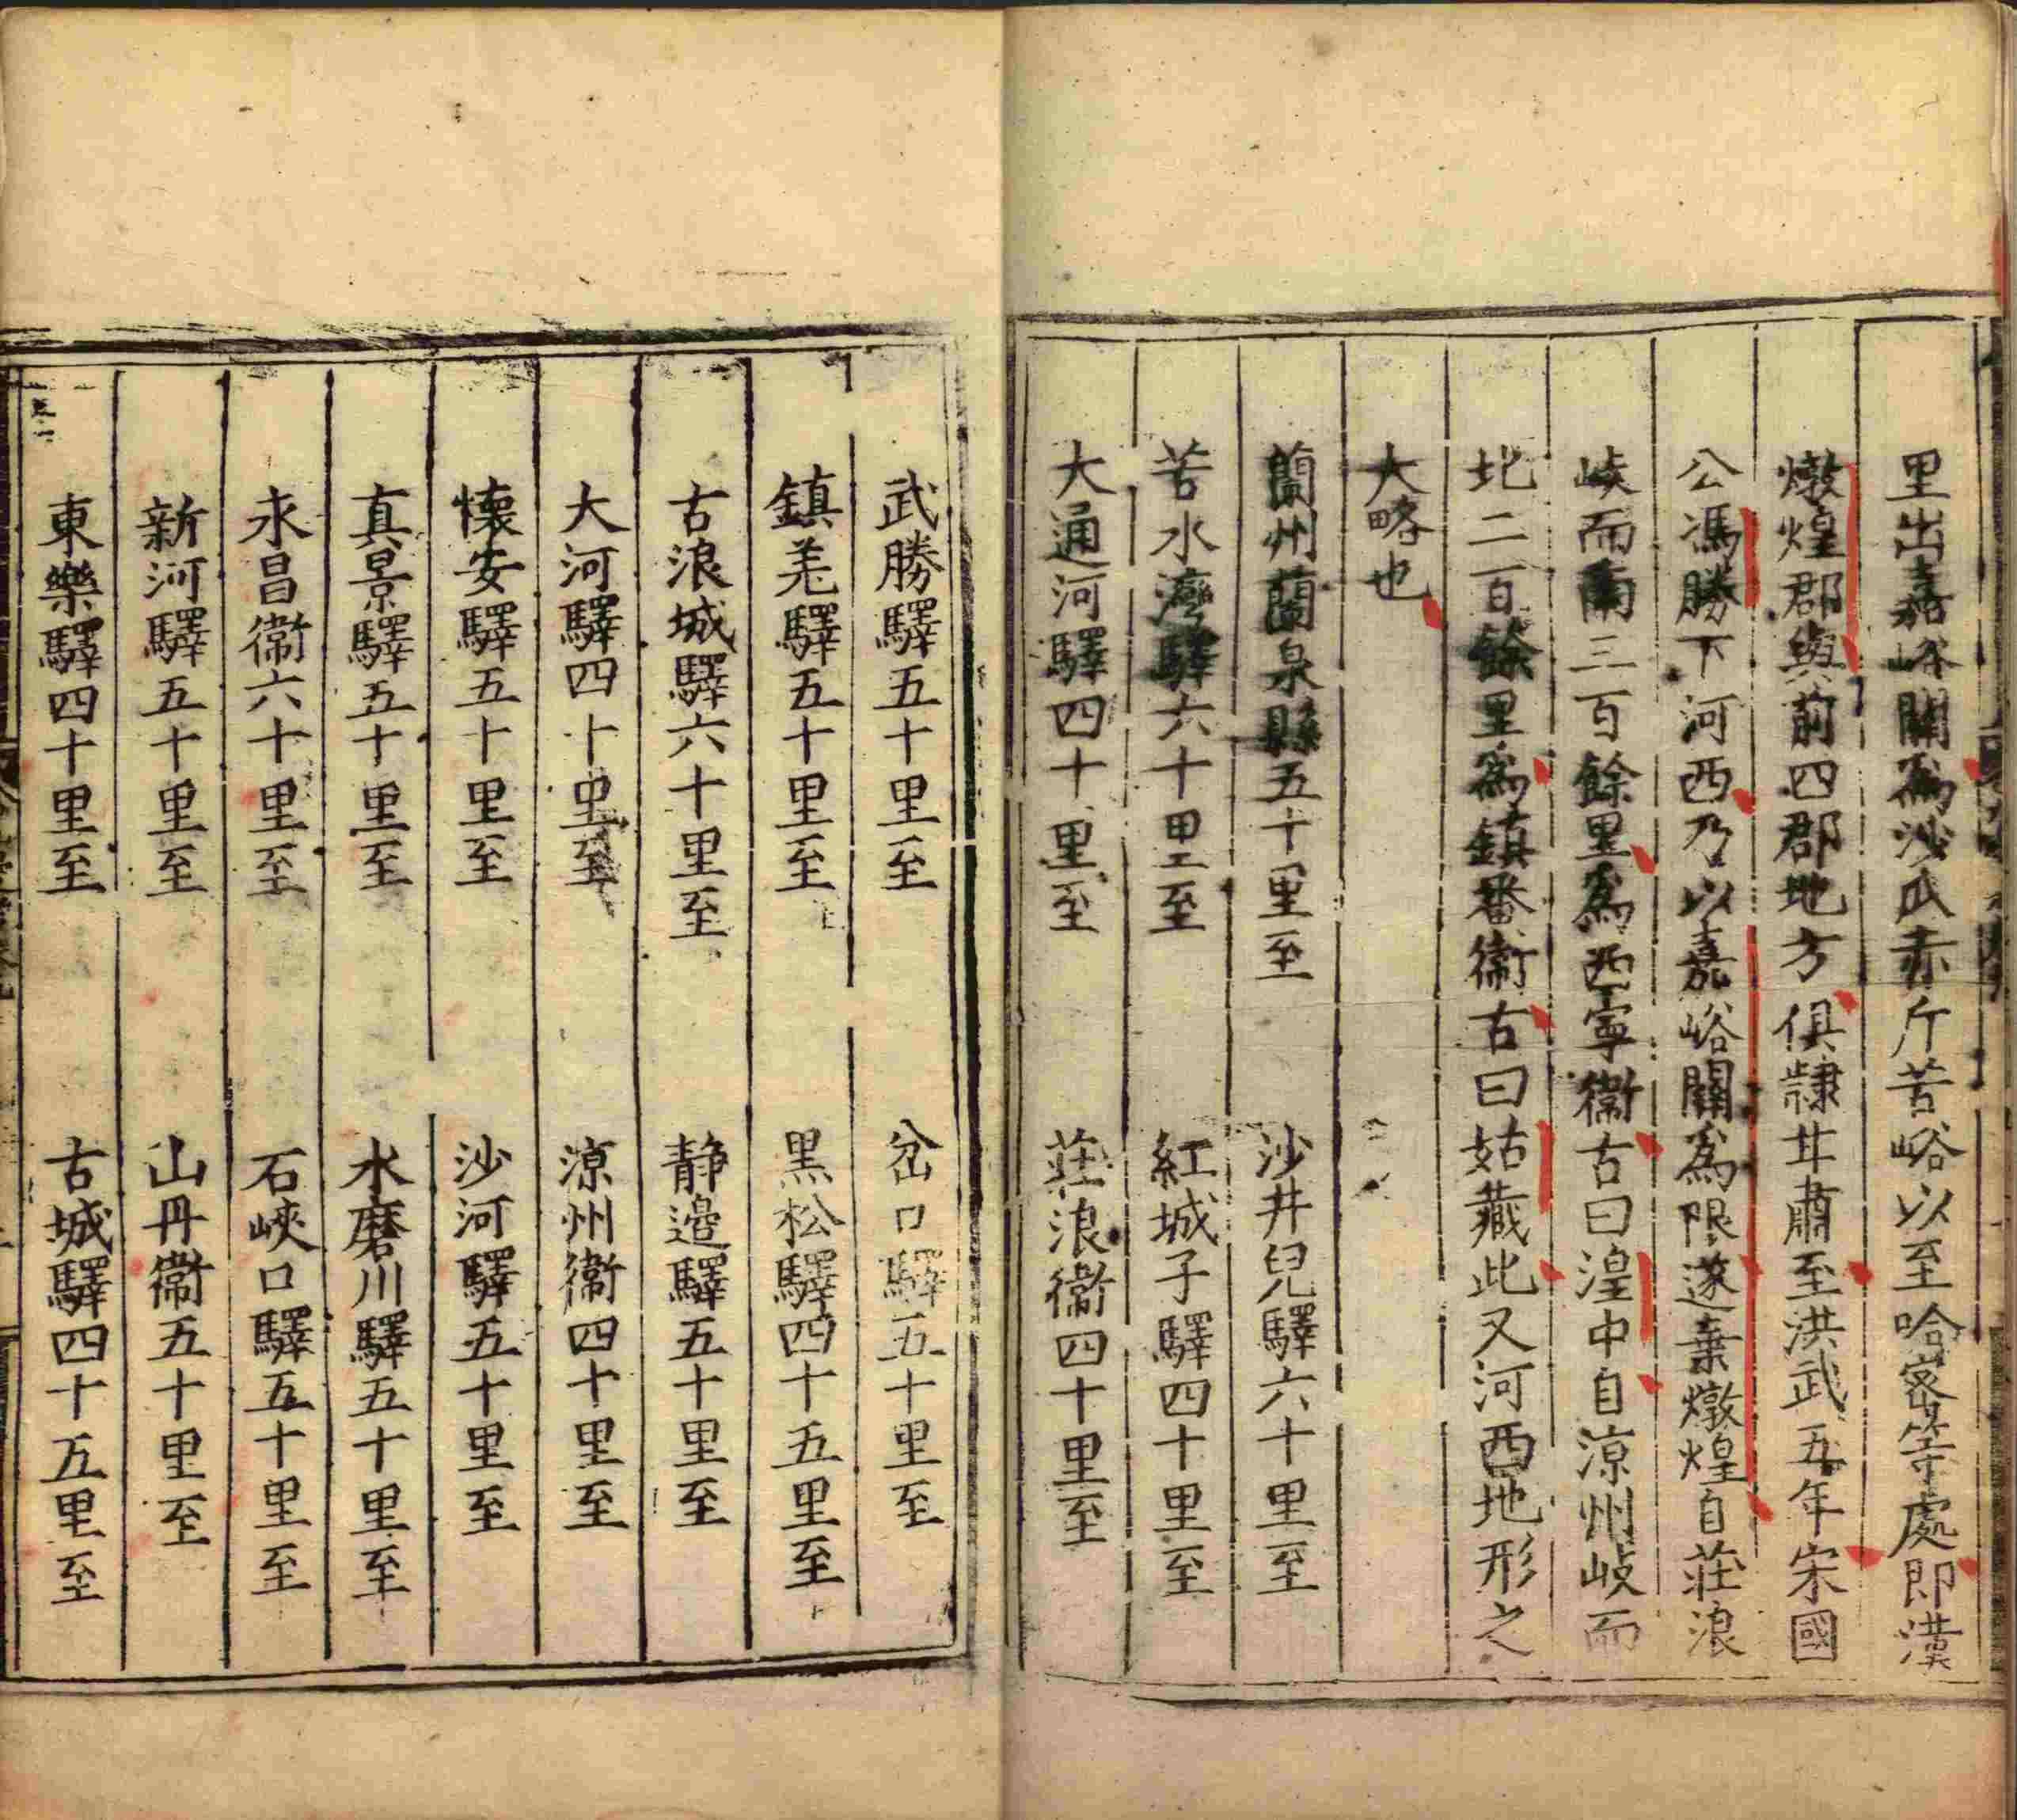 里出嘉峪關為沙瓜赤斤苦峪以至哈密等處即漢
燉煌郡與前四郡地方俱隷甘肅至洪武五年宋國
公馮勝下河西乃以嘉峪關為限遂棄燉煌自莊浪
岐而南三百餘里為西寧衞古曰湟中自涼州岐而
地二百餘里為鎮番衞古曰姑藏此又河西地形之
大略也
蘭州蘭泉縣五十里至 沙井兒驛六十里至
苦水灣驛六十里至 紅城子驛四十里至
大通河驛四十里至 莊浪衞四十里至
武勝驛五十里至 岔口驛五十里至
鎮羌驛五十里至 黑松驛四十五里至
古浪城驛六十里至 静邉驛五十里至
大河驛四十里至 涼州衞四十里至
懷安驛五十里至 沙河驛五十里至
真景驛五十里至 水磨川驛五十里至
永昌衞六十里至 石峽口驛五十里至
新河驛五十里至 山丹衞五十里至
東樂驛四十里至 古城驛四十五里至